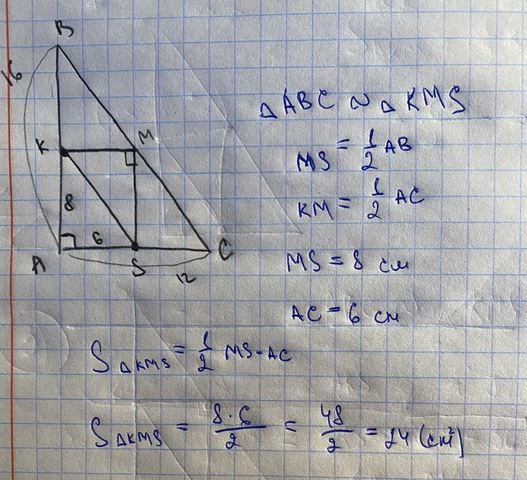 B
16
K
M
8
6
A
S
C
12
△ABC ∾ △KMS
MS = 1/2 AB
KM = 1/2 AC
MS = 8 см
AC = 6 см
S△KMS = 1/2 MS·AC
S△KMS = 8·6/2 = 48/2 = 24 (см²)